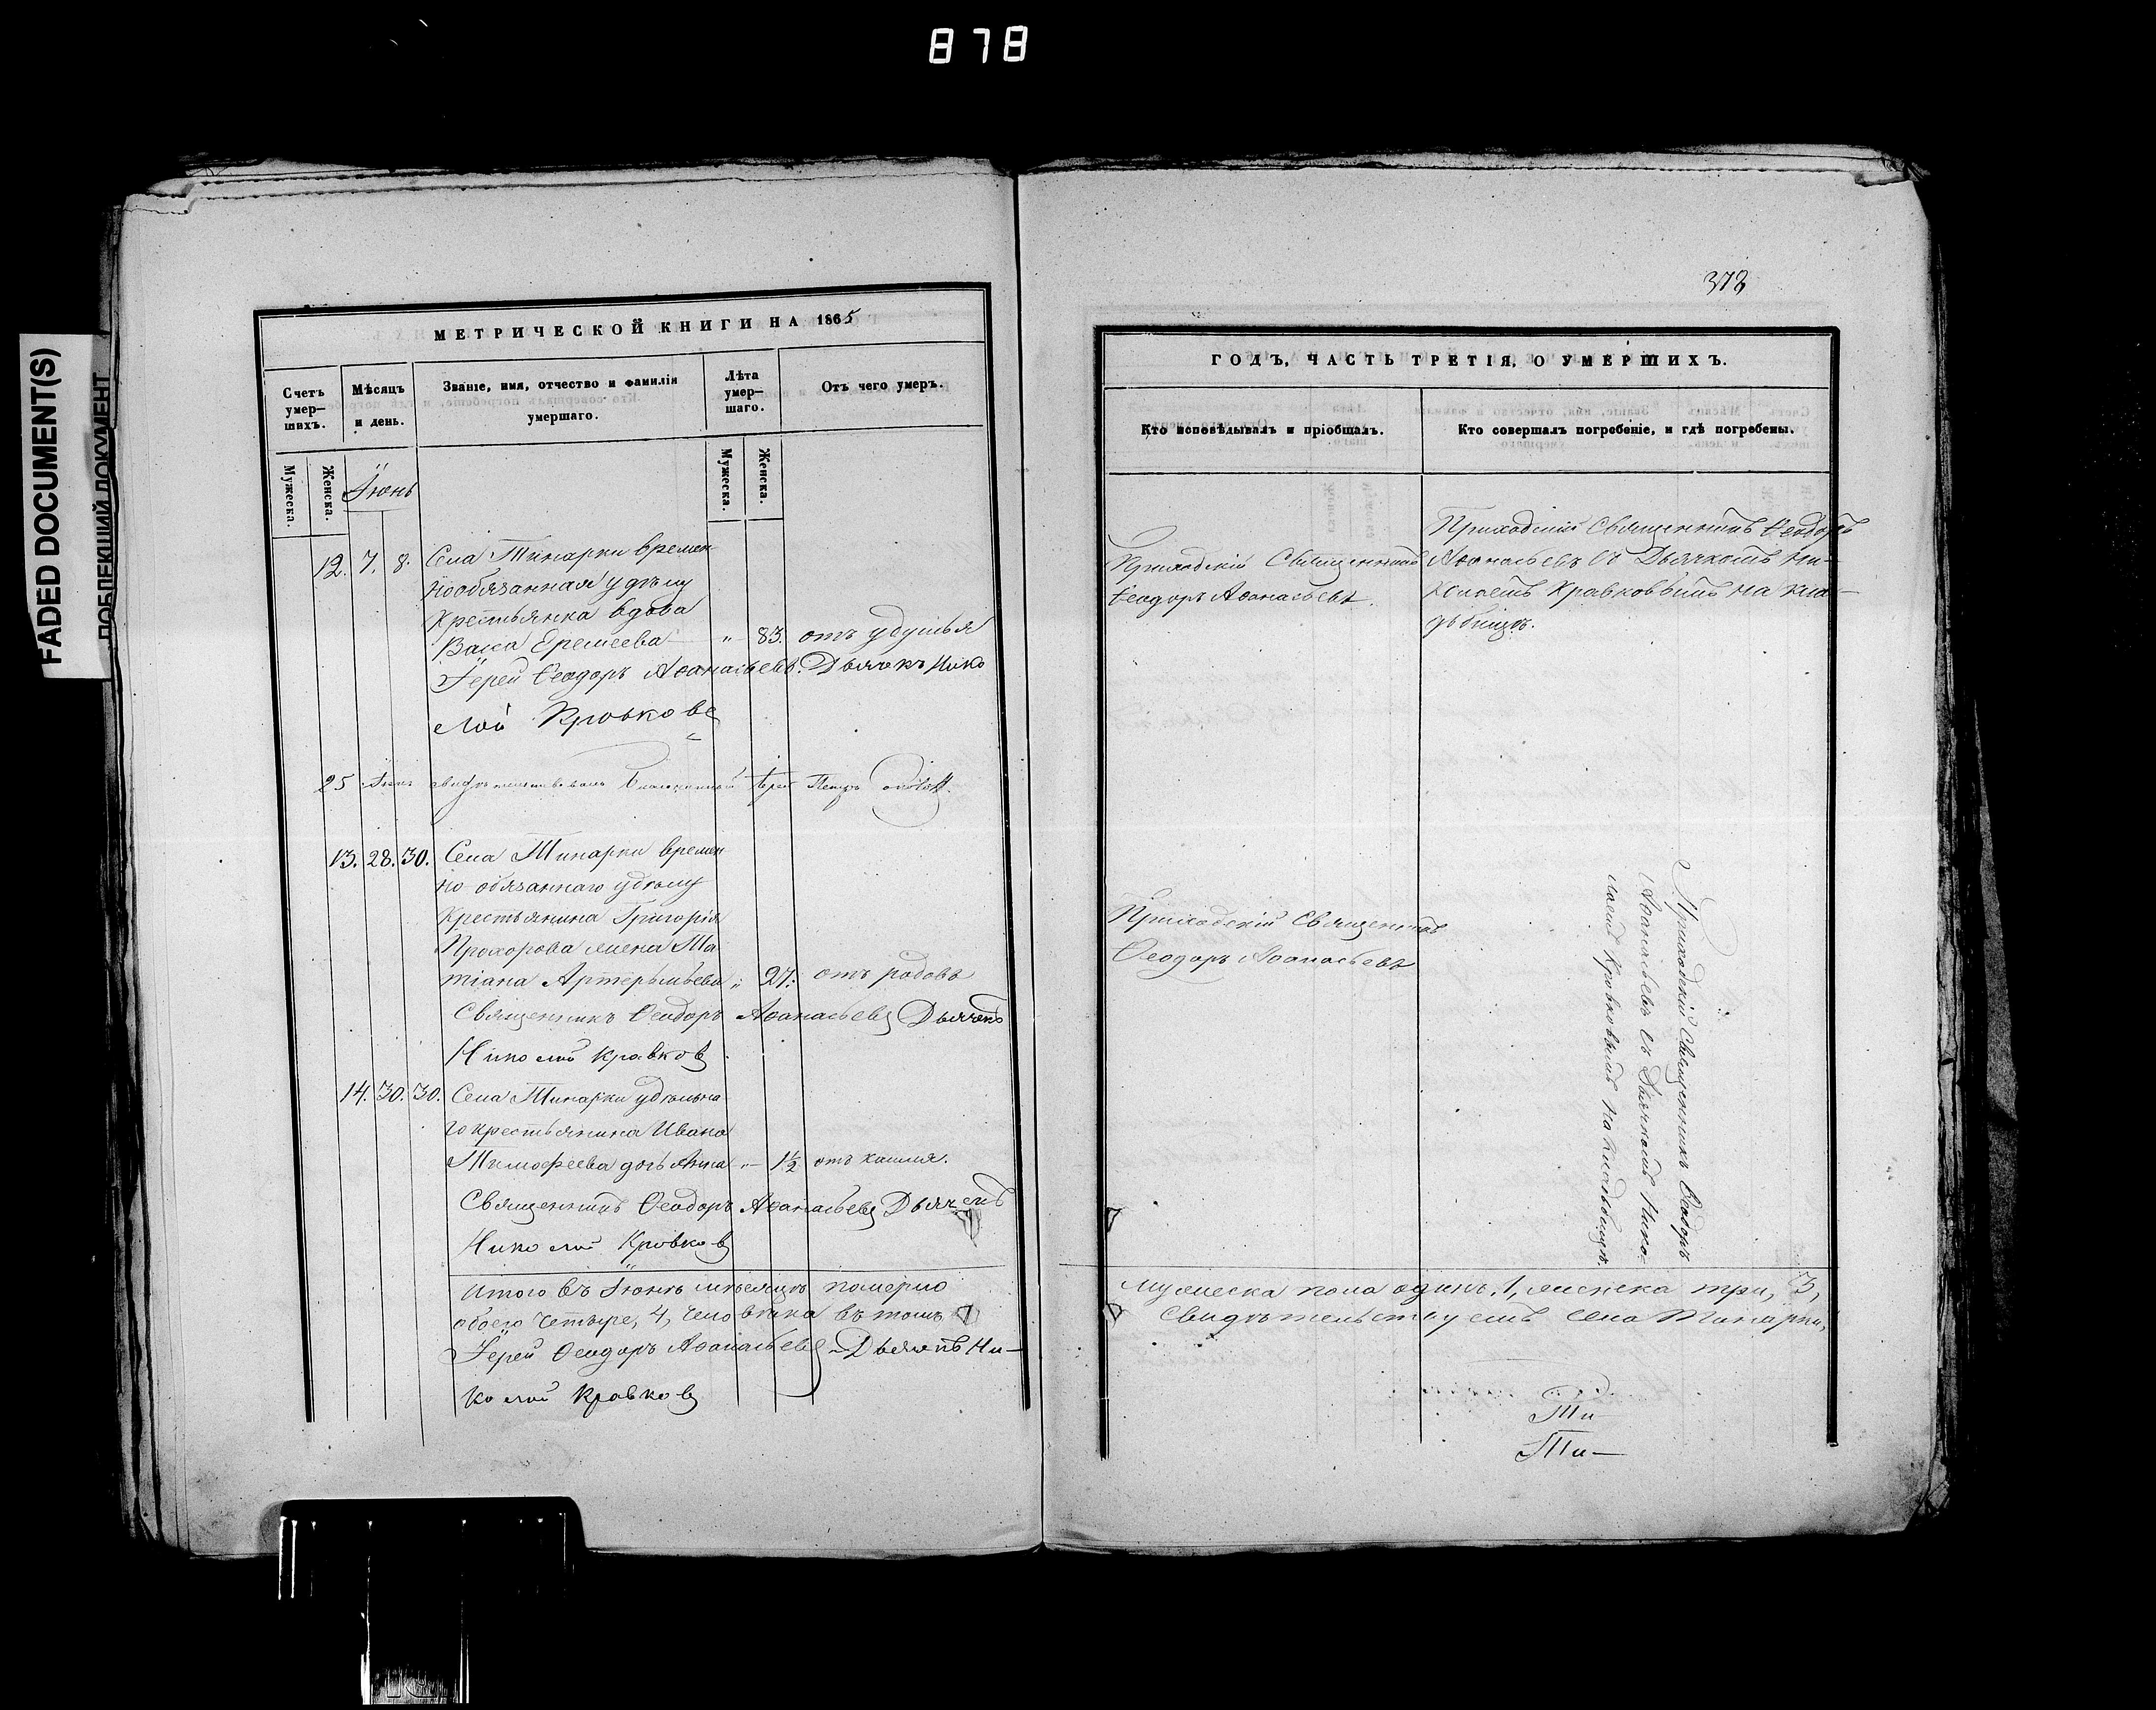 878
FADED DOCUMENT(S)
ПОБЛЕКШИЙ ДОКУМЕНТ
МЕТРИЧЕСКОЙ КНИГИ НА 1865
Счетъ умер-
шихъ.
Мѣсяцъ
и день.
Званіе, имя, отчество и фамилія
умершаго.
Лѣта
умер-
шаго.
Отъ чего умеръ.
Мужеска.
Женска.
Іюнь
Мужеска.
Женска.
12. 7. 8. Села Тинарки времен-
нообязанная удѣлу
крестьянка вдова
Васса Еремеева — „ 83. отъ удушья
Іерей Ѳеодоръ Аѳанасьевъ. Дьячекъ Нико
лай Кравковъ
25 Іюня свидѣтельствовалъ Благочинный Іерей Петръ
13. 28. 30. Села Тинарки времен
но обязаннаго удѣлу
крестьянина Григорія
Прохорова жена Та
тіана Артемьева „ 27. отъ родовъ
Священникъ Ѳеодоръ Аѳанасьевъ Дьячекъ
Николай Кравковъ
14. 30. 30. Села Тинарки удѣльна
го крестьянина Ивана
Тимофеева дочь Анна „— 1½ отъ кашля.
Священникъ Ѳеодоръ Аѳанасьевъ Дьячекъ
Николай Кравковъ
Итого въ Іюнѣ мѣсяцѣ померло
обоего четыре, 4, человѣка въ томъ
Іерей Ѳеодоръ Аѳанасьевъ Дьячекъ Ни-
колай Кравковъ
378
ГОДЪ, ЧАСТЬ ТРЕТІЯ, О УМЕРШИХЪ.
Кто исповѣдывалъ и пріобщалъ.
Кто совершалъ погребеніе, и гдѣ погребены.
Приходскій Священникъ
Ѳеодоръ Аѳанасьевъ.
Приходскій Священникъ Ѳеодоръ
Аѳанасьевъ съ Дьячкомъ Ни-
колаемъ Кравковымъ на кла-
дбищѣ.
Приходскій Священникъ
Ѳеодоръ Аѳанасьевъ
Приходскій Священникъ Ѳеодоръ
Аѳанасьевъ съ Дьячкомъ Нико-
лаемъ Кравковымъ на кладбищѣ.
мужеска пола одинъ, 1, женска три, 3,
Свидѣтельствуемъ Села Тинарки,
Ти-
Ти-